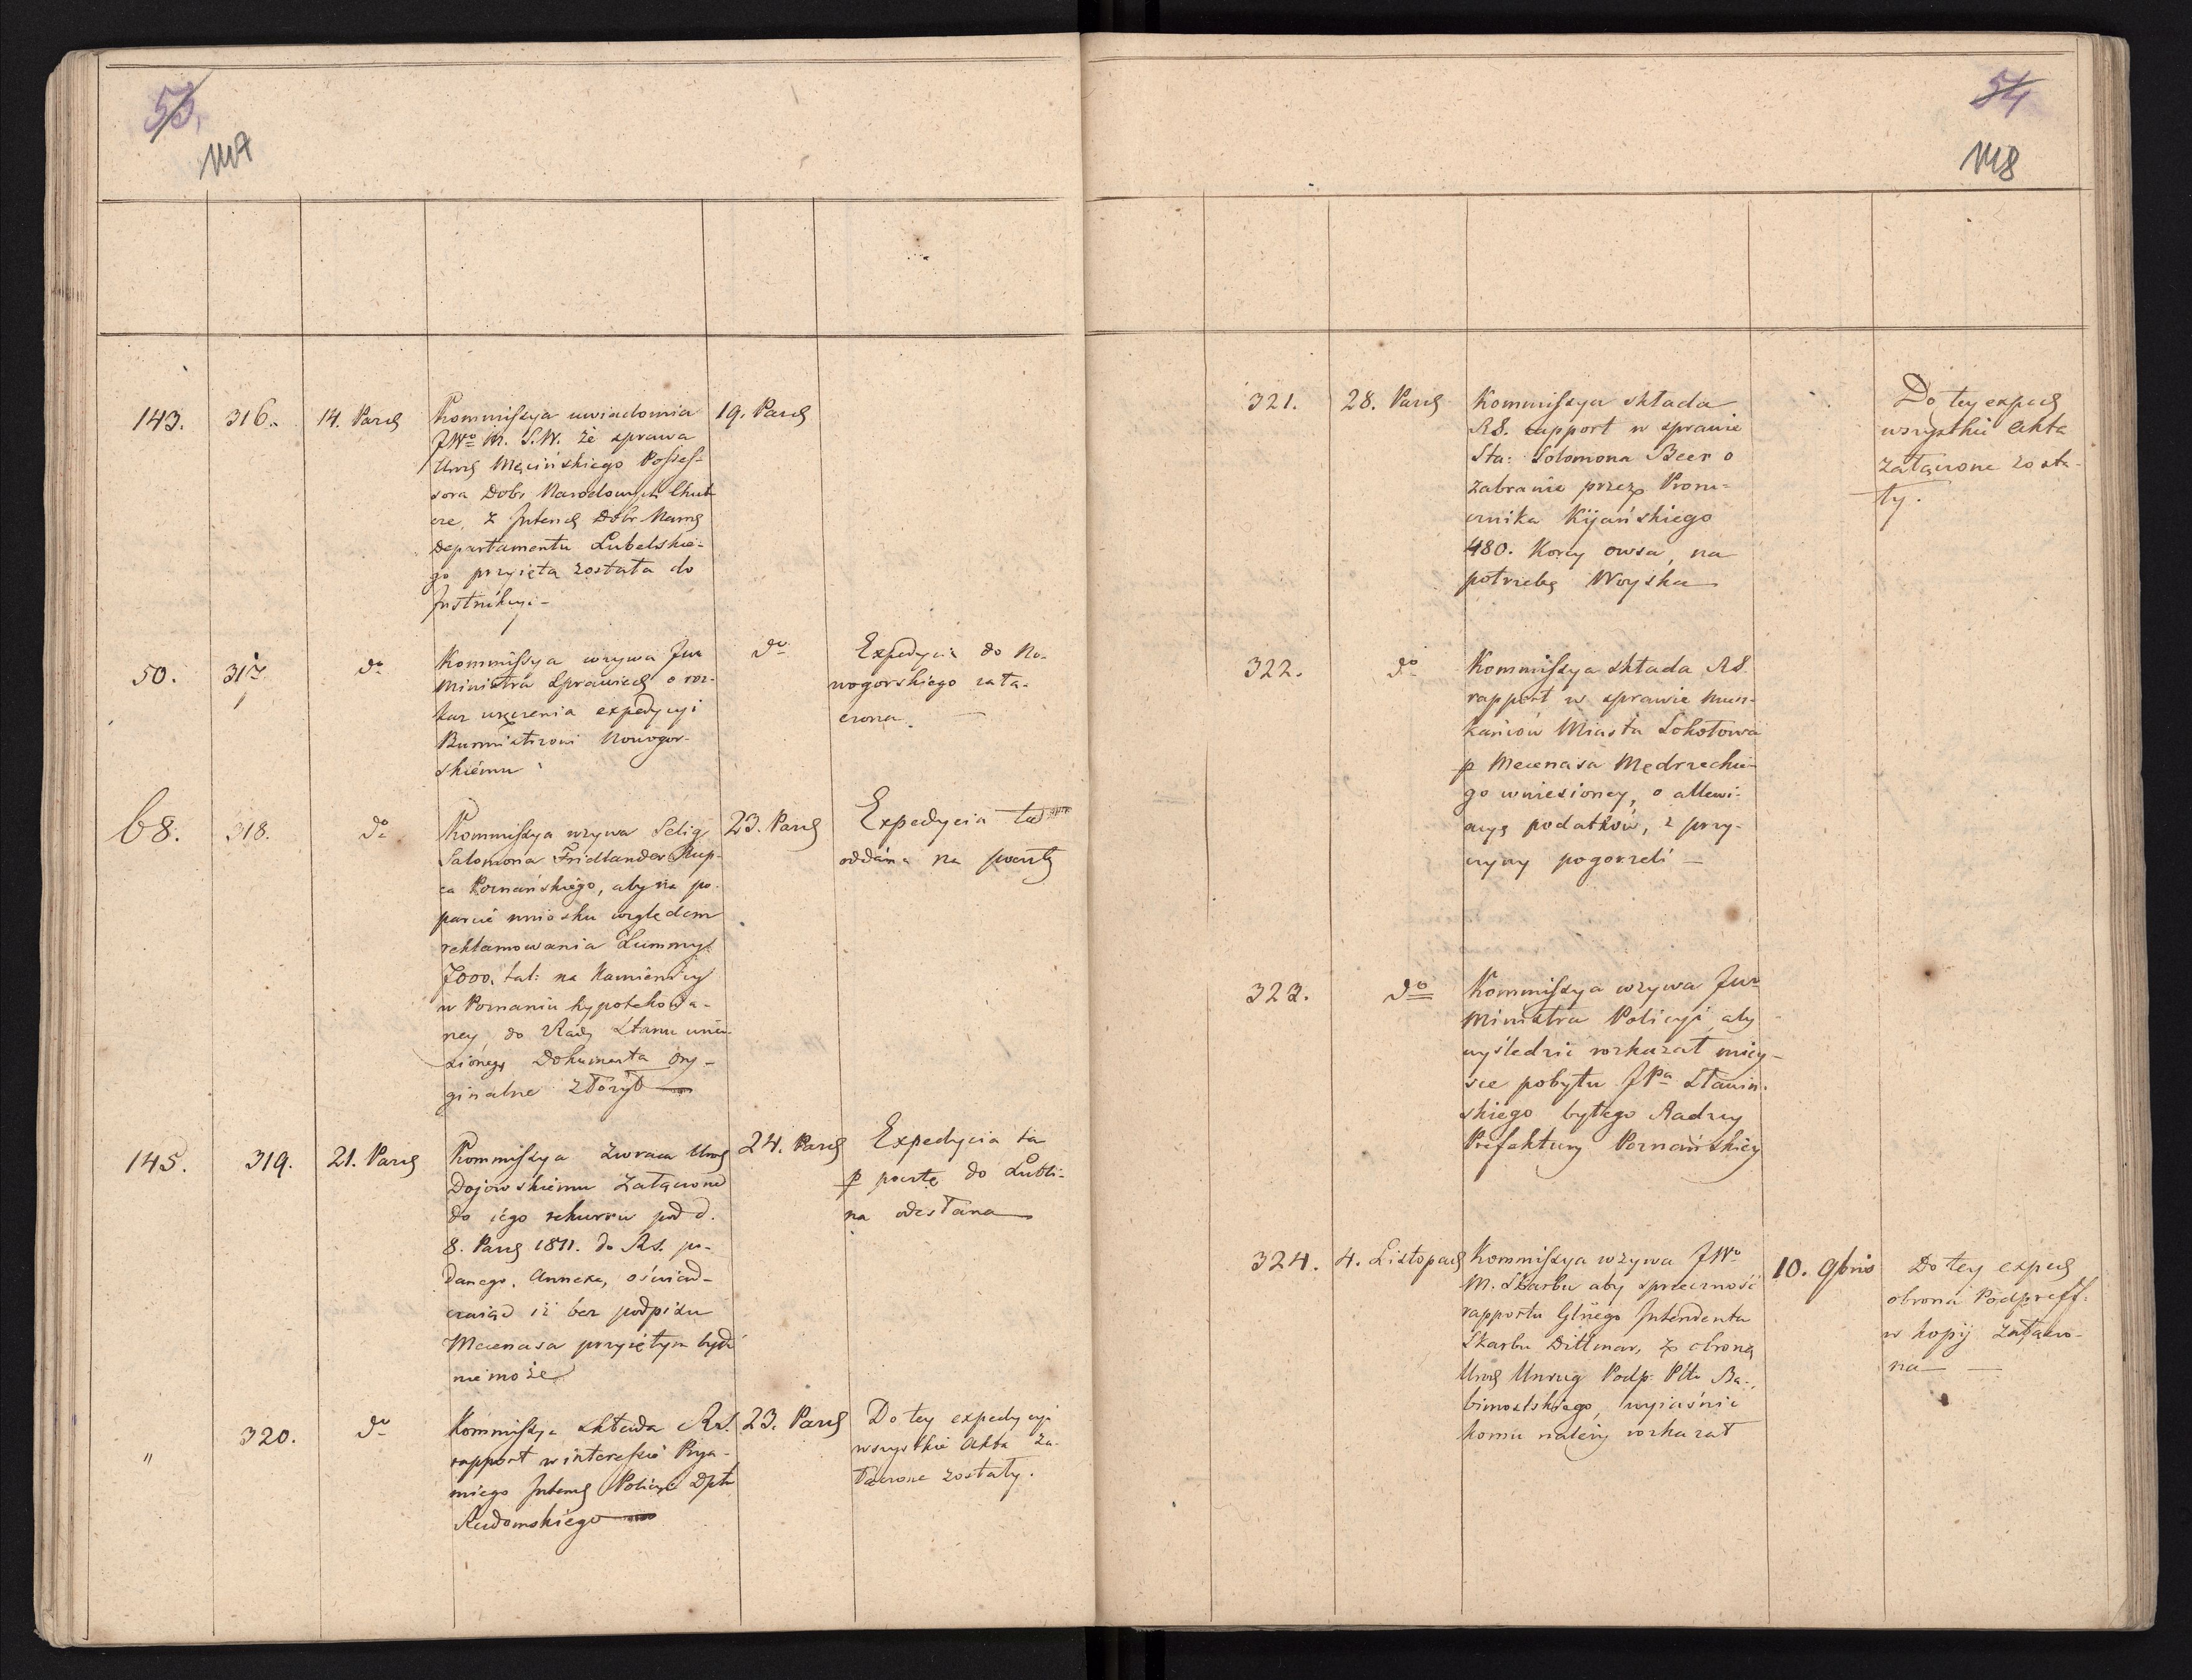 53.
147
143. 316. 14. Paźd 19. Paźd
Kommissya uwiadomia
JWo M. S.W. że sprawa
Urod Męcińskiego Posses-
sora Dobr Narodowych
z Intend Dobr Narod
Departamentu Lubelskie-
go przyięta została do
Instrukcyi -
50. 317. do do
Kommissya wzywa Jwa
Ministra Sprawied o roz-
kaz wręczenia expedycyi
Burmistrzowi Nowogor-
skiemu
Expedycia do No-
wogorskiego załą-
czona. —
68. 318. do 23. Paźd
Kommissya wzywa Selig
Salomona Fridlander Kup-
ca Poznańskiego, aby na po-
parcie wniosku względem
reklamowania Summy
7000. tal: na Kamienicy
w Poznaniu hypotekowa-
ney, do Rady Stanu wnie-
sionego Dokumenta ory-
ginalne złożył —
Expedycia ta
oddana na pocztę
145. 319. 21. Paźd 24. Paźd
Kommissya zwraca Urod
Dojowskiemu załączone
do iego rekursu pod d.
8. Paźd 1811. do Rs. po-
danego, Annexa, oświad-
czaiąc iż bez podpisu
Mecenasa przyiętym bydź
nie może
Expedycia ta
p pocztę do Lubli-
na odesłana —
" 320. do 23. Paźd
Kommissya składa Rs.
rapport w interessie
Intend Policyi Dptu
Radomskiego —
Do tey expedycyi
wszystkie Akta za-
łączone zostały.
54
148
321. 28. Paźd
Kommissya składa
RS. rapport w sprawie
Sta: Solomona Beer o
zabranie przez
Kijańskiego
480. Korcy owsa, na
potrzebę Woyska —
Do tey exped
wszystkie Akta
załączone zosta-
ły.
322. do
Kommissya składa RS.
rapport w sprawie miesz-
kańców Miasta Sokołowa
p Mecenasa Mędrzeckie-
go wniesioney, o allewi-
acyą podatków, z przy-
czyny pogorzeli —
323. do
Kommissya wzywa Jwa
Ministra Policyi aby
wyśledzić rozkazał miey-
sce pobytu JPa Stawin-
skiego byłego Radzcy
Prefektury Poznańskiey
324. 4. Listopad 10. 9bris
Kommissya wzywa JWo
M. Skarbu aby sprzeczność
rapportu Glnego Intendenta
Skarbu Dittmar, z obroną
Urod Unrug Podp. Pttu Ba-
bimostskiego, wyiaśnić
komu należy rozkazał
Do tey exped
obrona Podpreff.
w kopij załączo-
na —